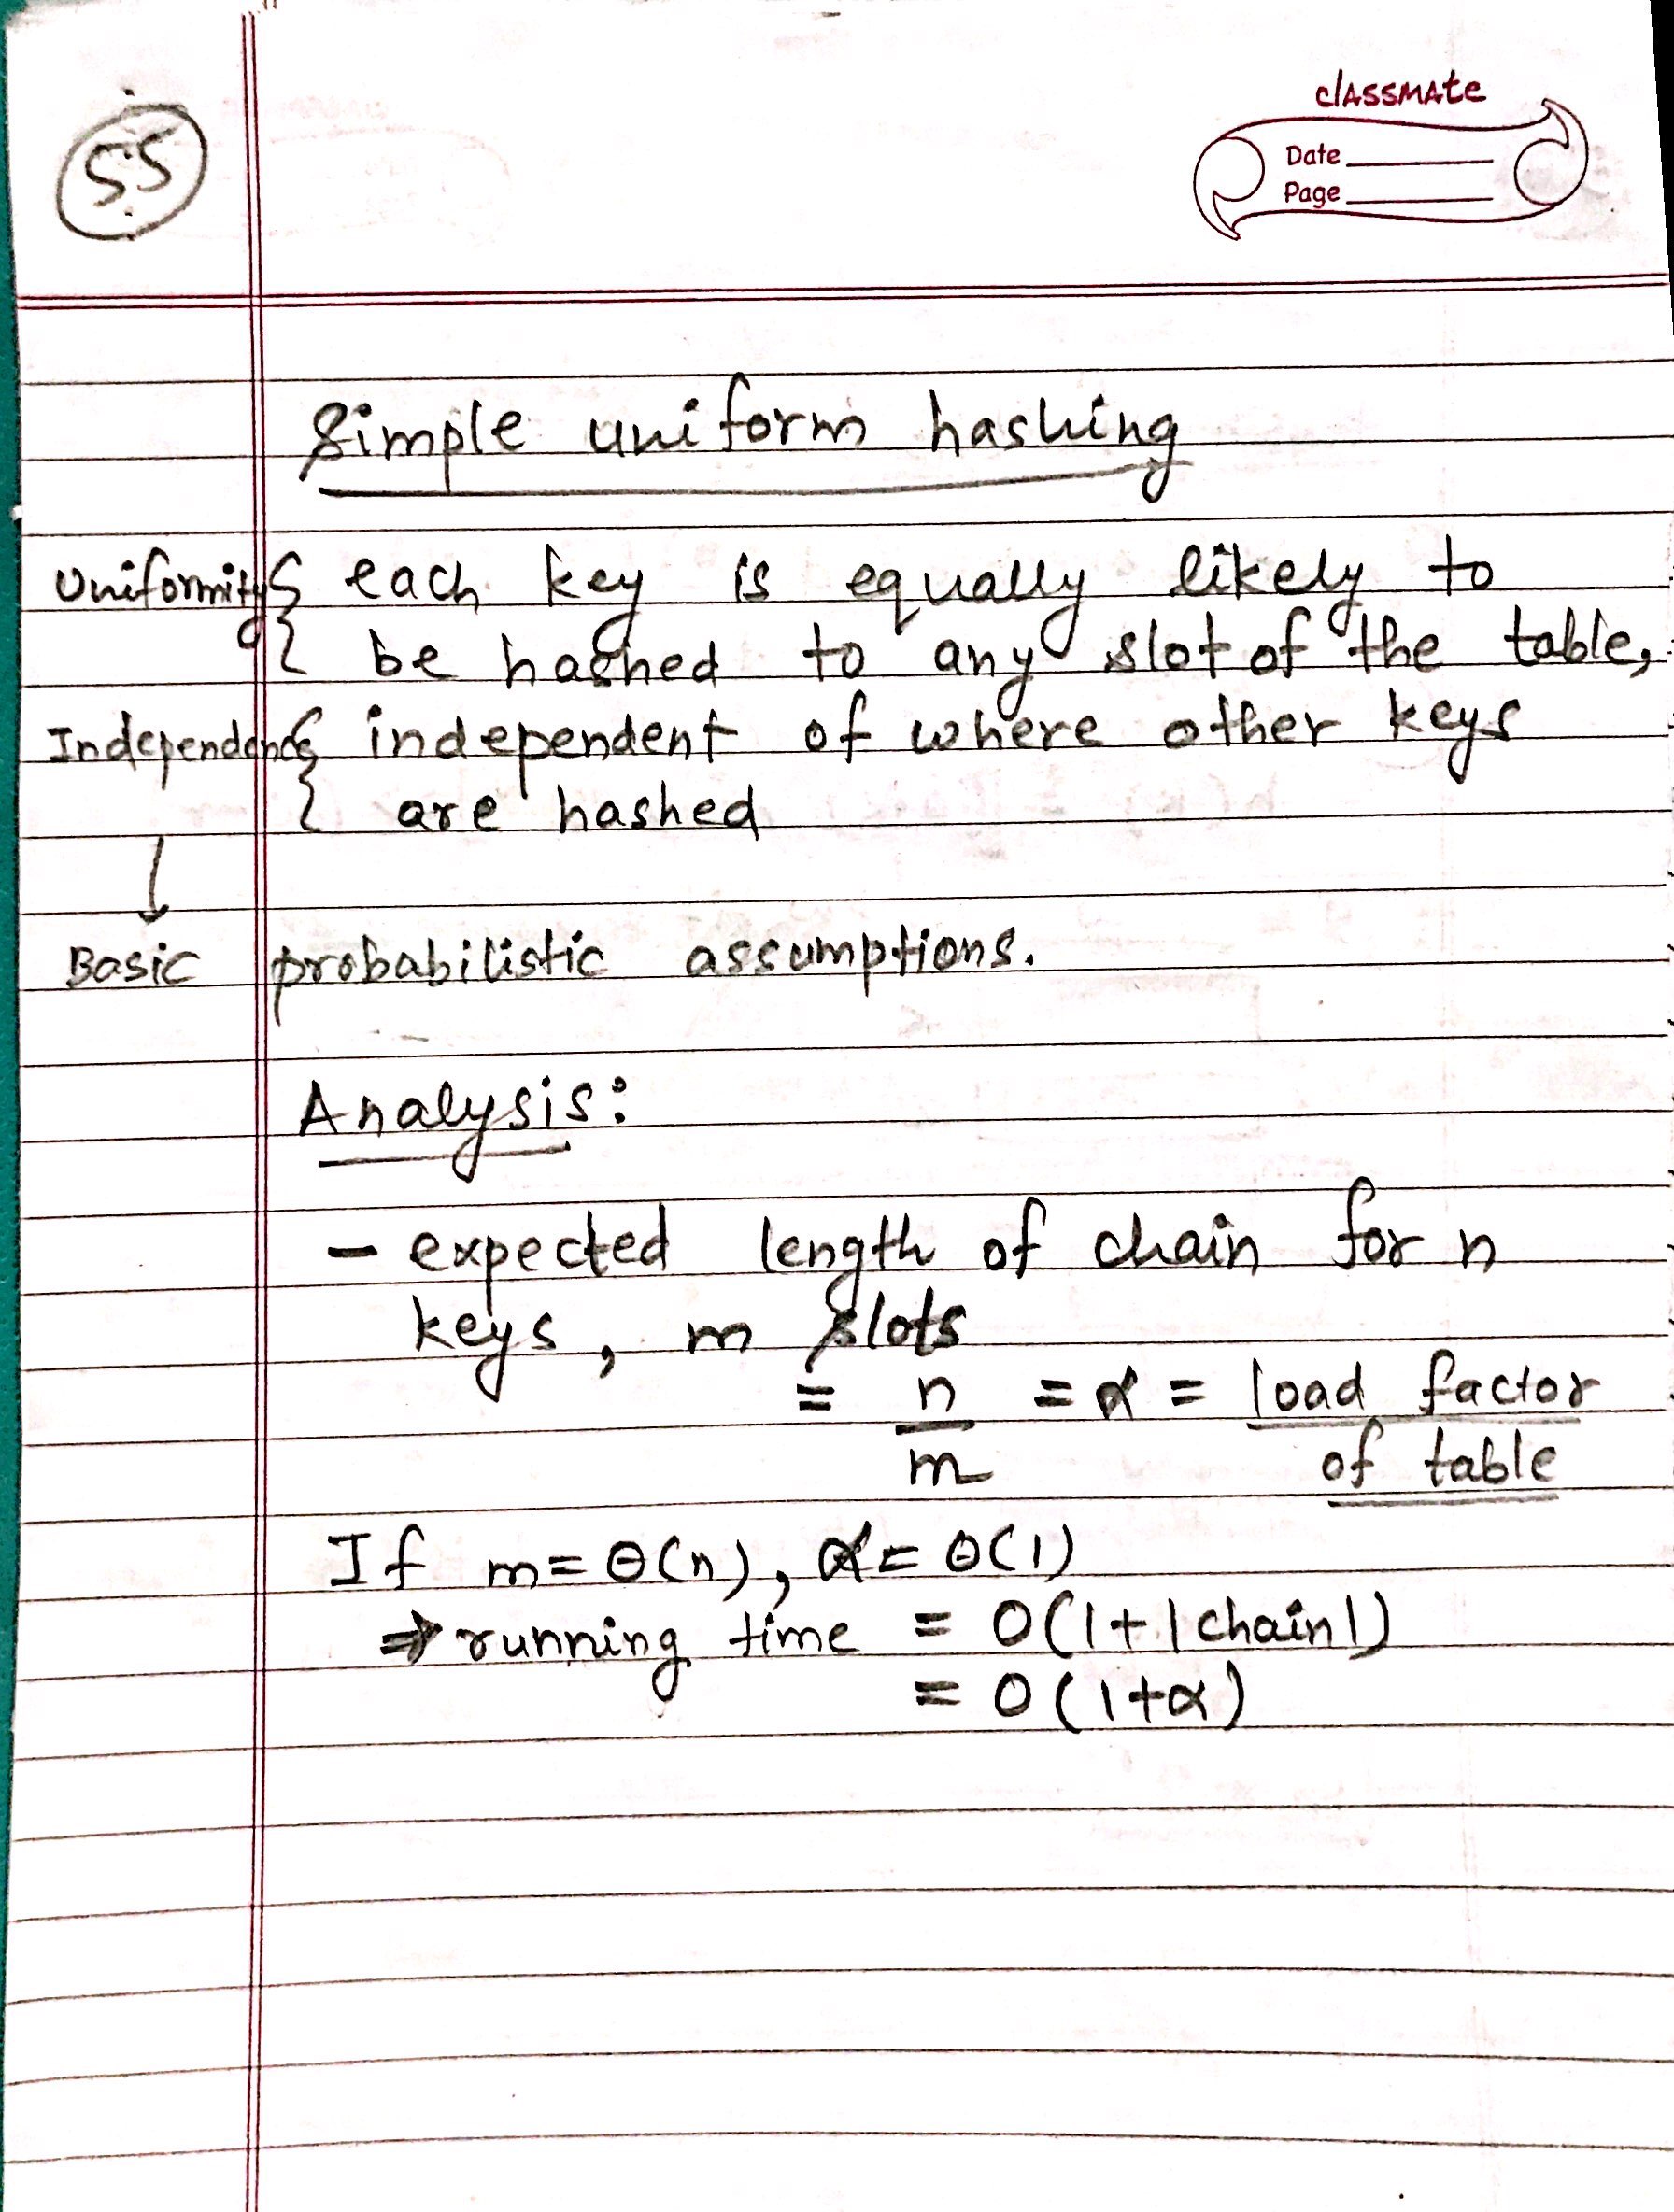 55
classmate
Date
Page
Simple uniform hashing
Uniformity { each key is equally likely to
be hashed to any slot of the table,
Independence { independent of where other keys
are hashed
↓
Basic probabilistic assumptions.
Analysis:
- expected length of chain for n
keys, m slots
= n/m = α = load factor
of table
If m = Θ(n), α = Θ(1)
⇒ running time = O(1+|chain|)
= O(1+α)